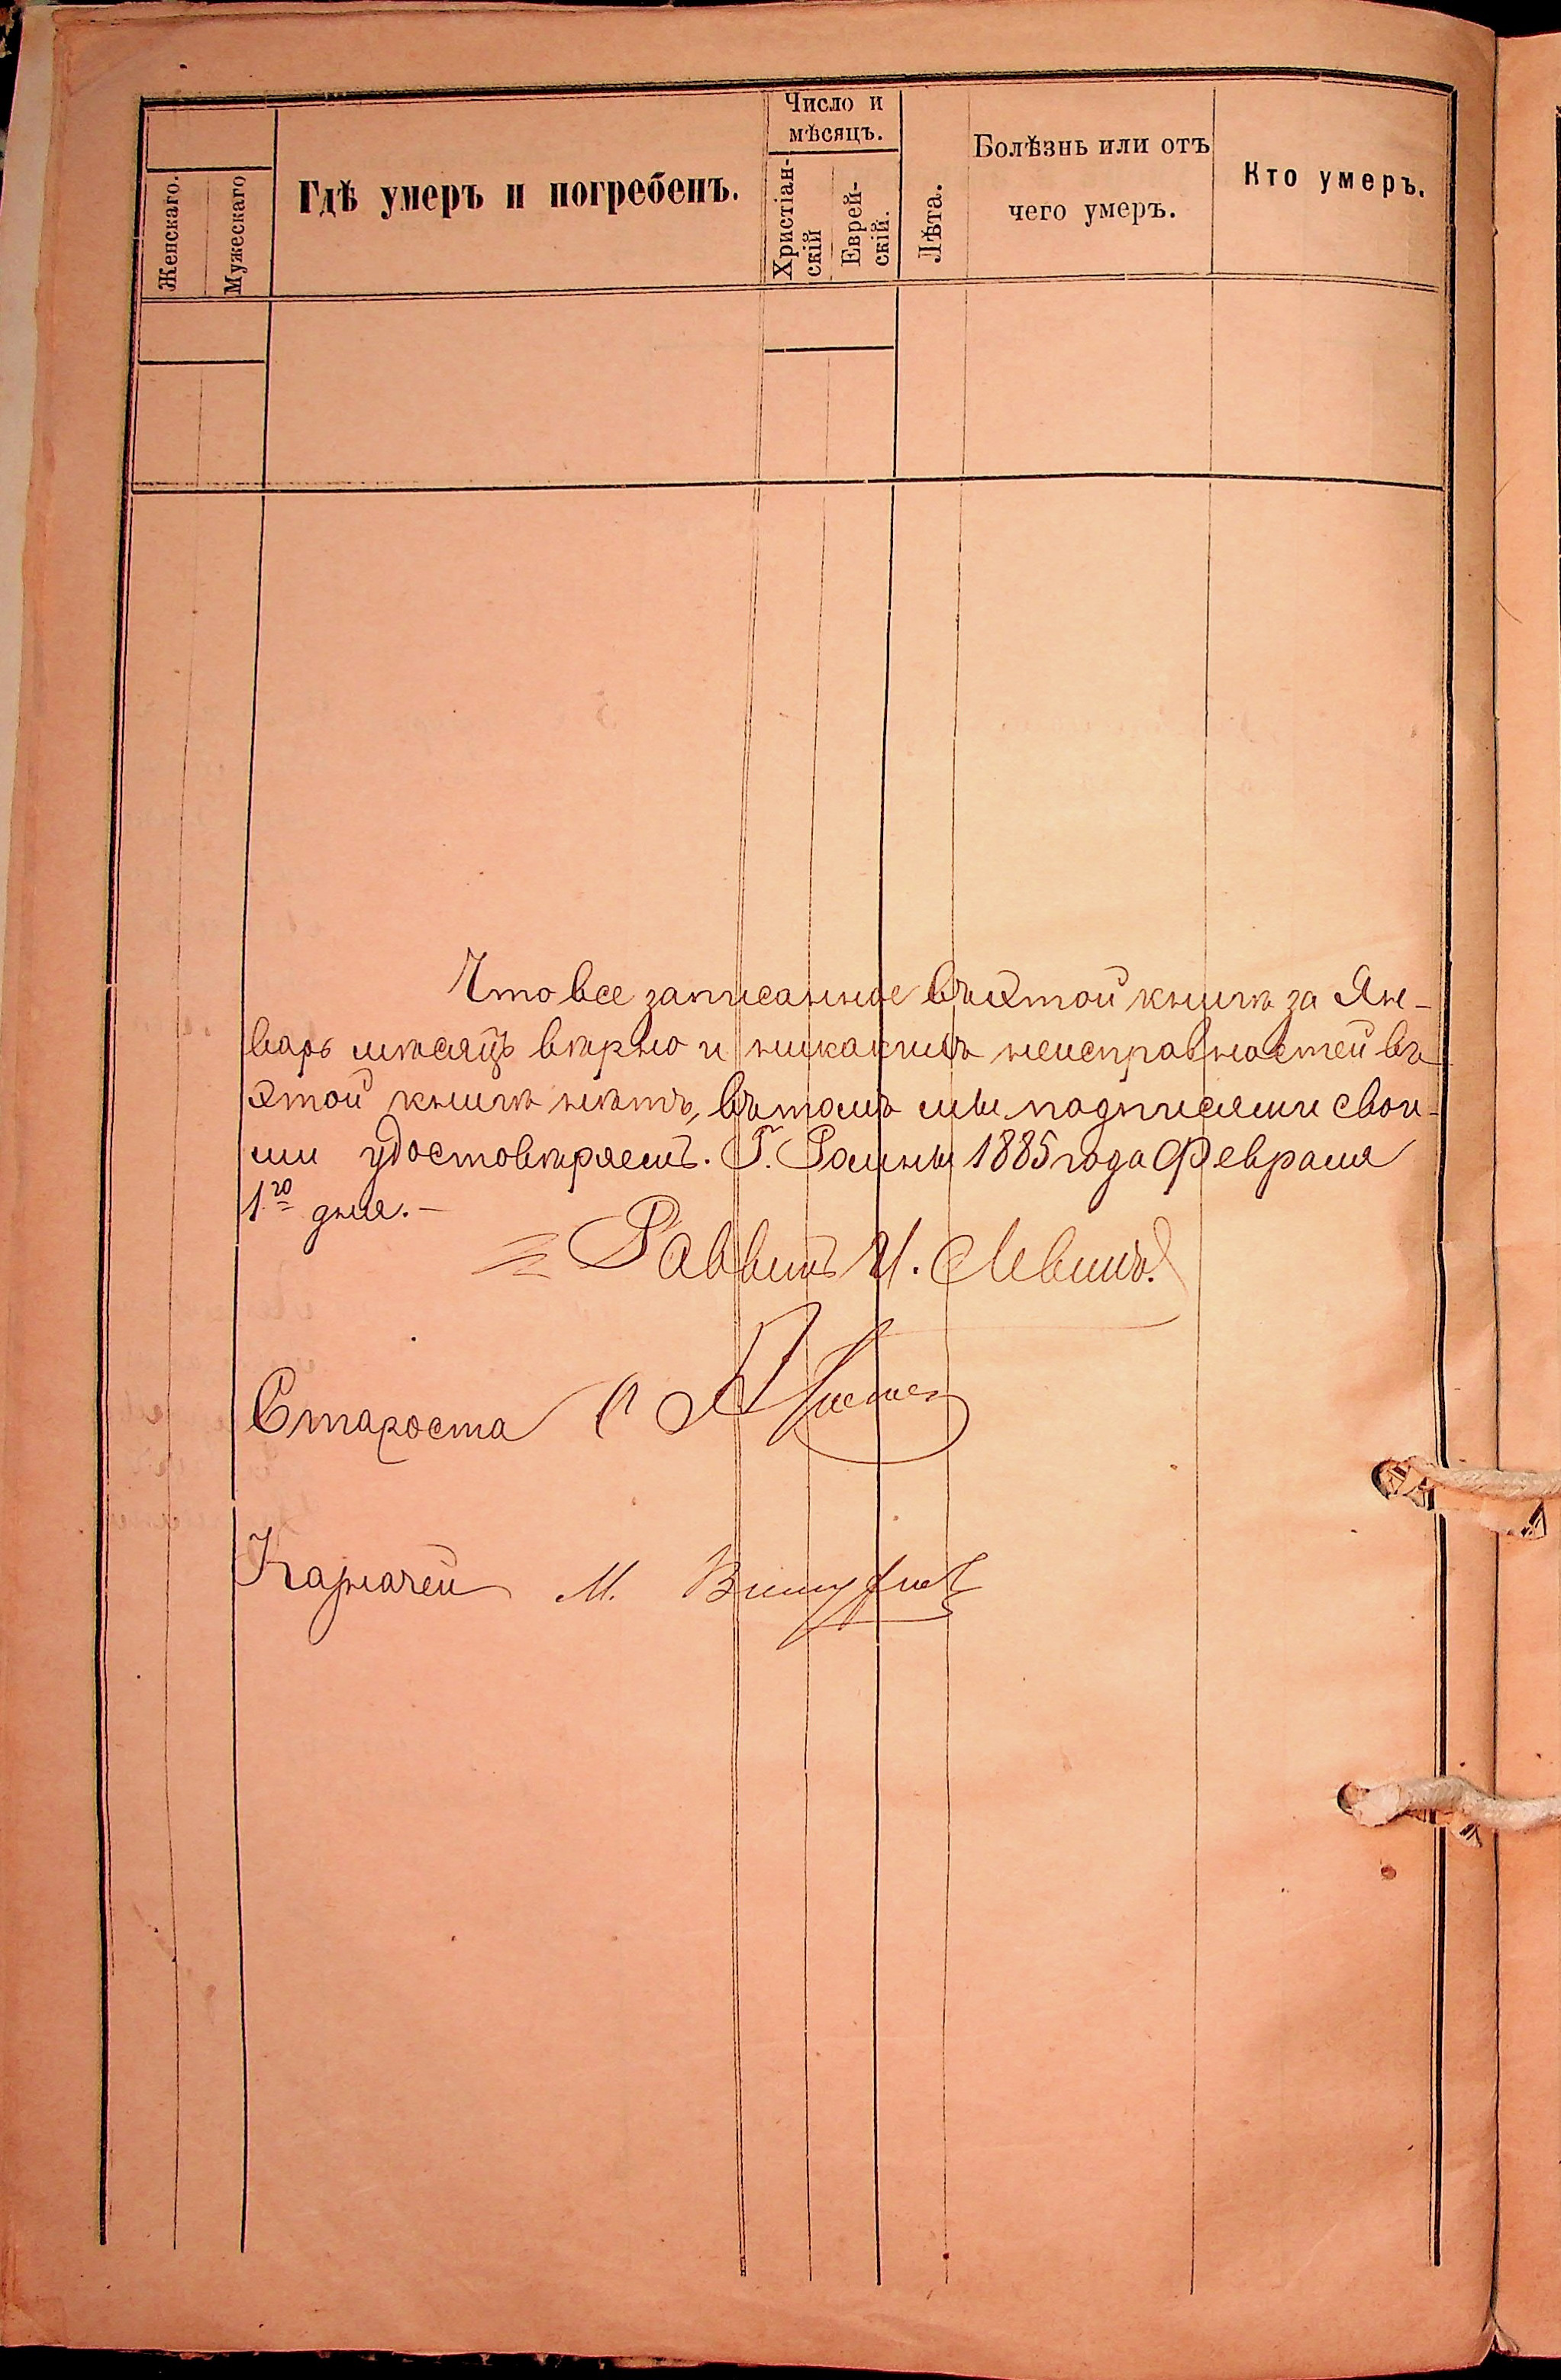 Женскаго.
Мужескаго
Гдѣ умеръ и погребенъ.
Число и
мѣсяцъ.
Христіан-
скій
Еврей-
скій.
Лѣта.
Болѣзнь или отъ
чего умеръ.
Кто умеръ.
Что все записанное въ этой книгѣ за Ян-
варь мѣсяцъ вѣрно и никакихъ неисправностей въ
этой книгѣ нѣтъ, въ томъ мы подписями свои-
ми удостовѣряемъ. Г. Ромны 1885 года Февраля
1го дня.-
Раввинъ И. Левинъ.
Староста
Казначей М.